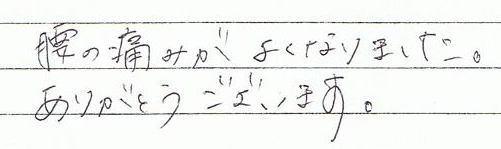 腰の痛みが よくなりました。
ありがとうございます。